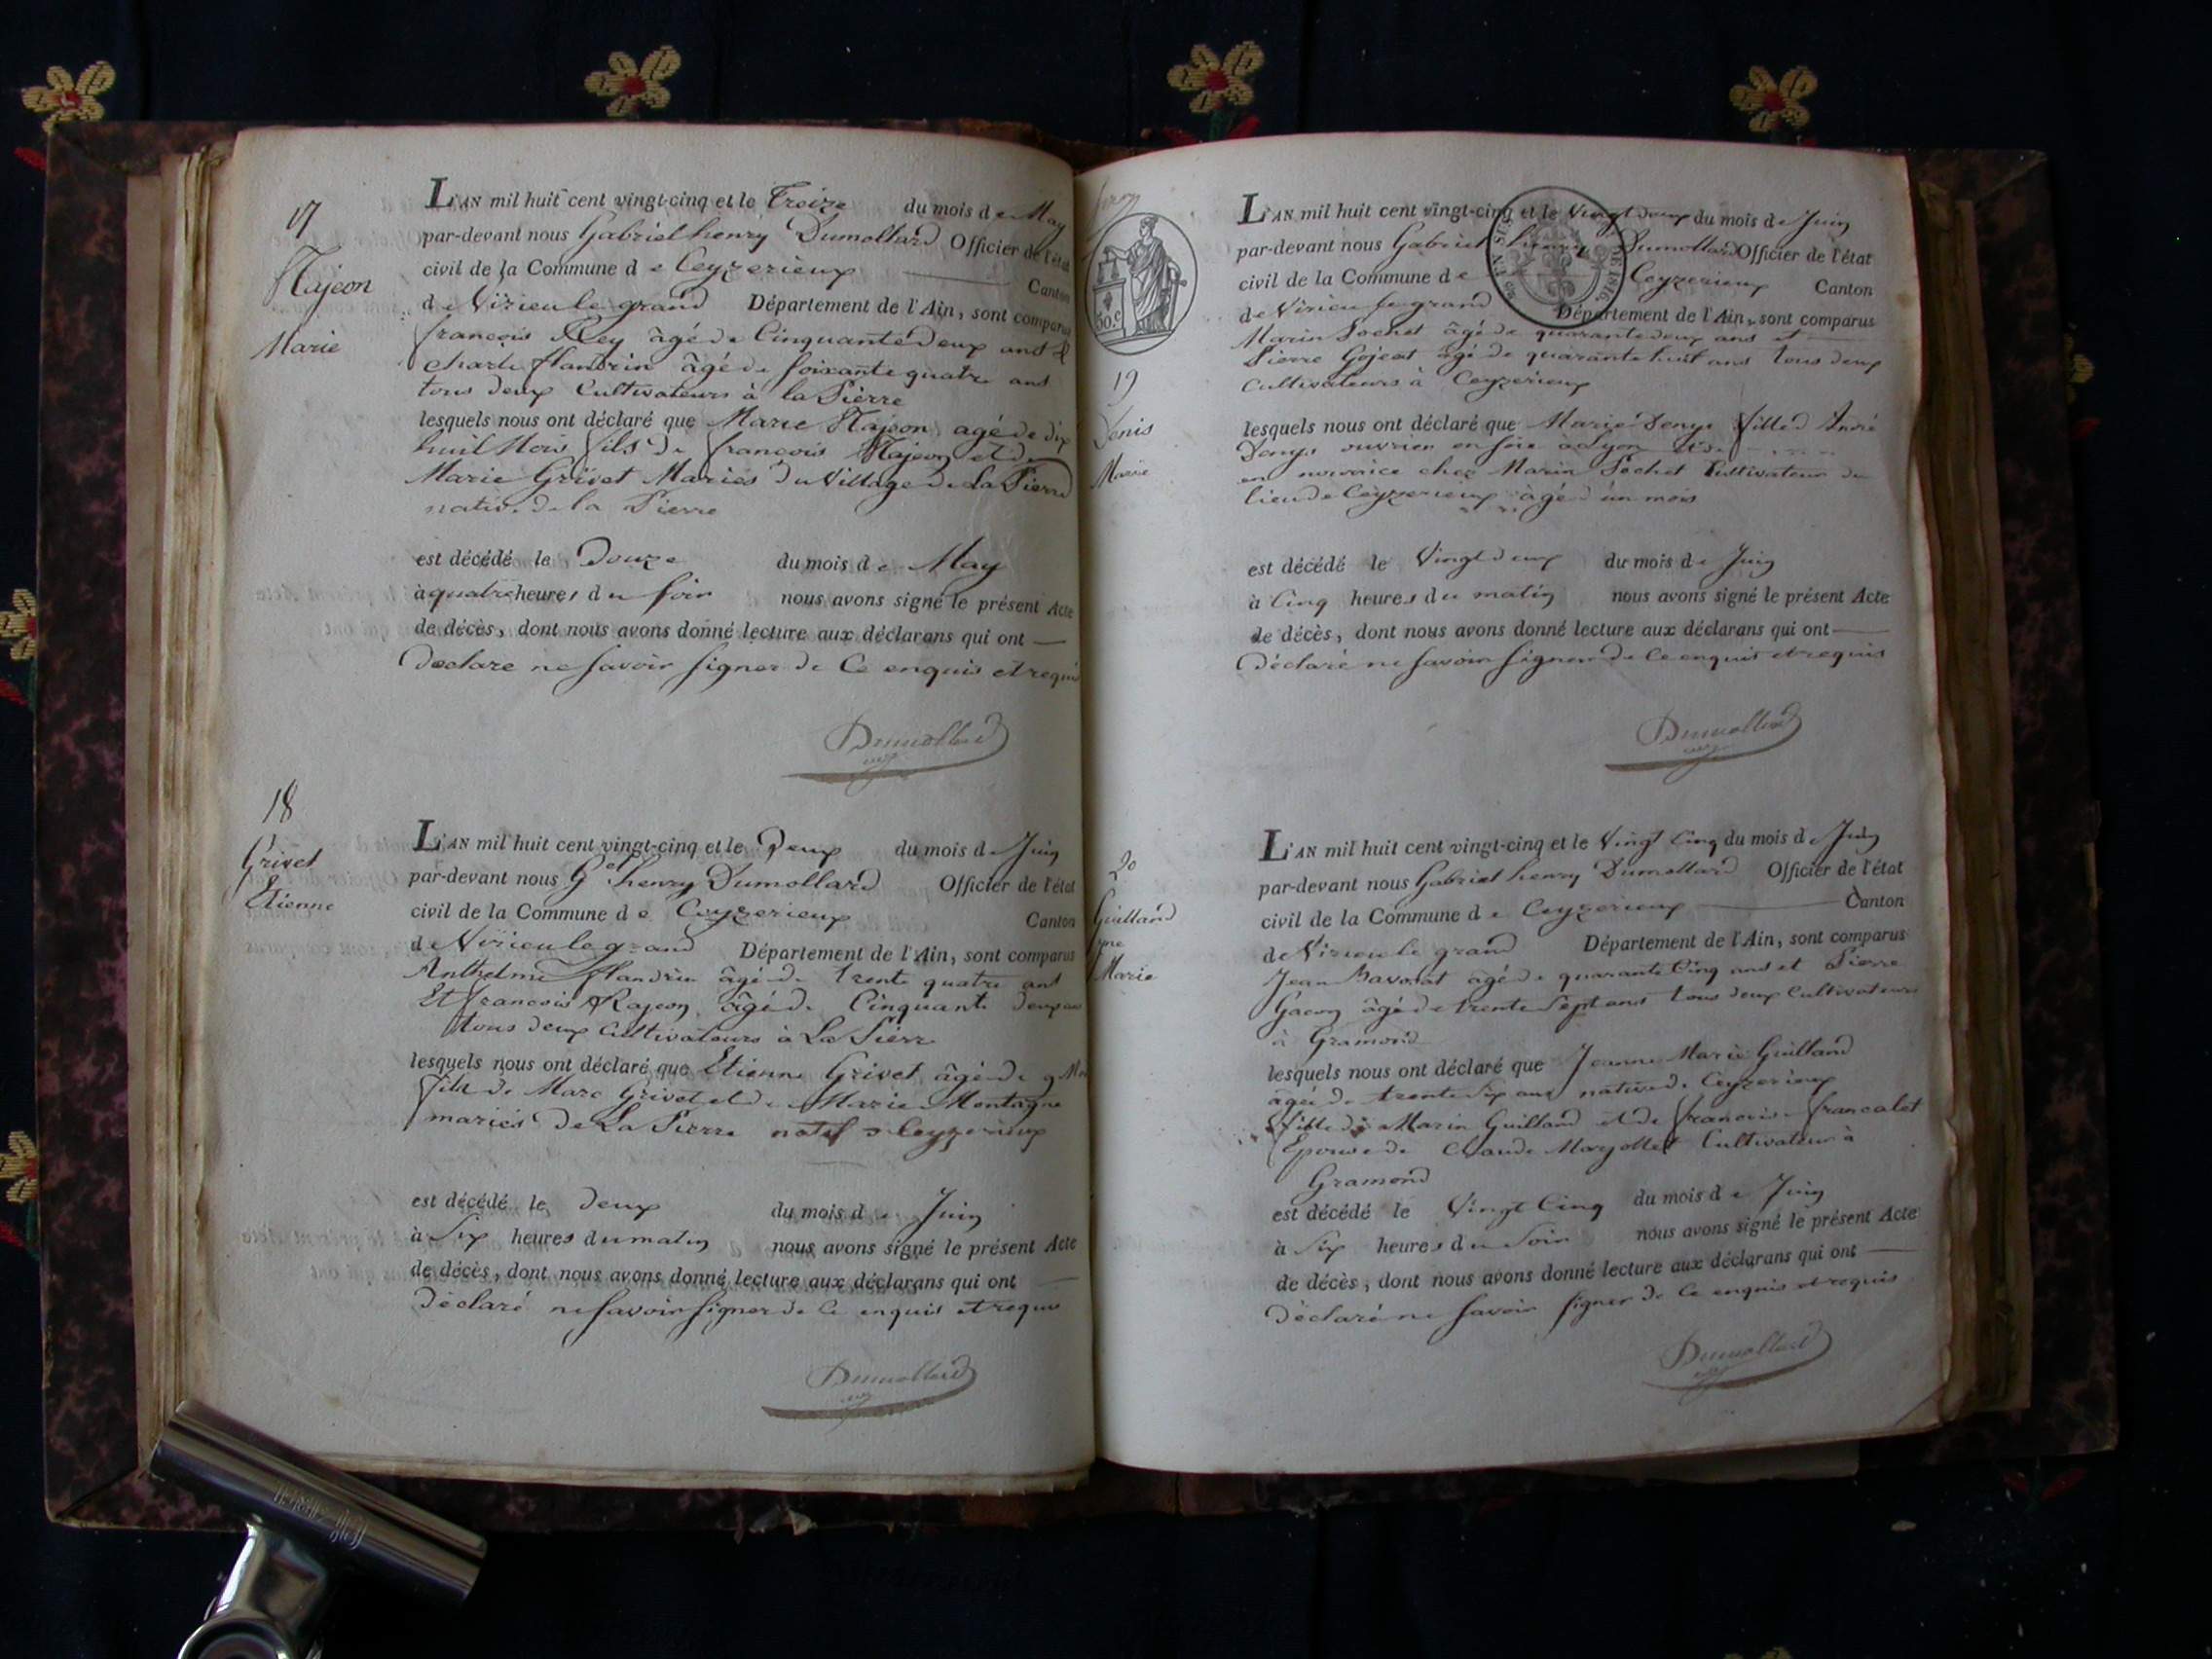 17
Rajeon
Marie
L'AN mil huit cent vingt-cinq et le Treize du mois de May
par-devant nous Gabriel henry Dumollard Officier de l'état
civil de la Commune de Ceyzerieux Canton
de Virieu le grand Département de l'Ain, sont comparus
francois Rey âgé de Cinquante deux ans &
charle flandrin âgé de soixante quatre ans
tous deux Cultivateurs à la Pierre
lesquels nous ont déclaré que Marie Rajeon agé de dix
huit Mois fils de francois Rajeon et de
Marie Grivet Mariés du Village de La Pierre
native de la Pierre
est décédé le Douze du mois de May
à quatre heures du soir nous avons signé le présent Acte
de décès, dont nous avons donné lecture aux déclarans qui ont
declare ne savoir signer de Ce enquis et requis
Dumollard
18
Grivet
Etienne
L'AN mil huit cent vingt-cinq et le Deux du mois de Juin
par-devant nous Gel henry Dumollard Officier de l'état
civil de la Commune de Ceyzerieux Canton
de Virieu le grand Département de l'Ain, sont comparus
Anthelme flandrin âgé de trente quatre ans
Et francois Rajeon âgé de Cinquante deux ans
tous deux Cultivateurs à La Pierre
lesquels nous ont déclaré que Etienne Grivet âgé de 9 Mois
fils de Marc Grivet et de Marie Montagne
mariés de La Pierre natif de Ceyzerieux
est décédé le deux du mois de Juin
à Six heures du matin nous avons signé le présent Acte
de décès, dont nous avons donné lecture aux déclarans qui ont
déclaré ne savoir signer de Ce enquis et requis
Dumollard
50.c
19
Denis
Marie
L'AN mil huit cent vingt-cinq et le Vingt deux du mois de Juin
par-devant nous Gabriel henry Dumollard Officier de l'état
civil de la Commune de Ceyzerieux Canton
de Virieu le grand Département de l'Ain, sont comparus
DE 1816.
Marin Pochet âgé de quarante deux ans et
Pierre Gojeat âgé de quarante huit ans tous deux
Cultivateurs à Ceyzerieux
lesquels nous ont déclaré que Marie Denys fille d André
Denys ouvrier en soie à Lyon et de
en nourrice chez Marin Pochet Cultivateur du
lieu de Ceyzerieux âgé d'un mois
est décédé le Vingt deux du mois de Juin
à Cinq heures du matin nous avons signé le présent Acte
de décès, dont nous avons donné lecture aux déclarans qui ont
déclaré ne savoir signer de Ce enquis et requis
Dumollard
20
Guilland
Jne
Marie
L'AN mil huit cent vingt-cinq et le Vingt Cinq du mois de Juin
par-devant nous Gabriel henry Dumollard Officier de l'état
civil de la Commune de Ceyzerieux Canton
de Virieu le grand Département de l'Ain, sont comparus
Jean Bavozat âgé de quarante Cinq ans et Pierre
Gacon âgé de trente Sept ans tous deux Cultivateurs
à Gramond
lesquels nous ont déclaré que Jeanne Marie Guilland
âgée de trente Six ans native de Ceyzerieux
fille de Marin Guilland et de francoise francalet
Epouse de Claude Marjollet Cultivateur à
Gramond
est décédé le Vingt Cinq du mois de Juin
à Six heures du Soir nous avons signé le présent Acte
de décès, dont nous avons donné lecture aux déclarans qui ont
déclaré ne savoir signer de Ce enquis et requis
Dumollard